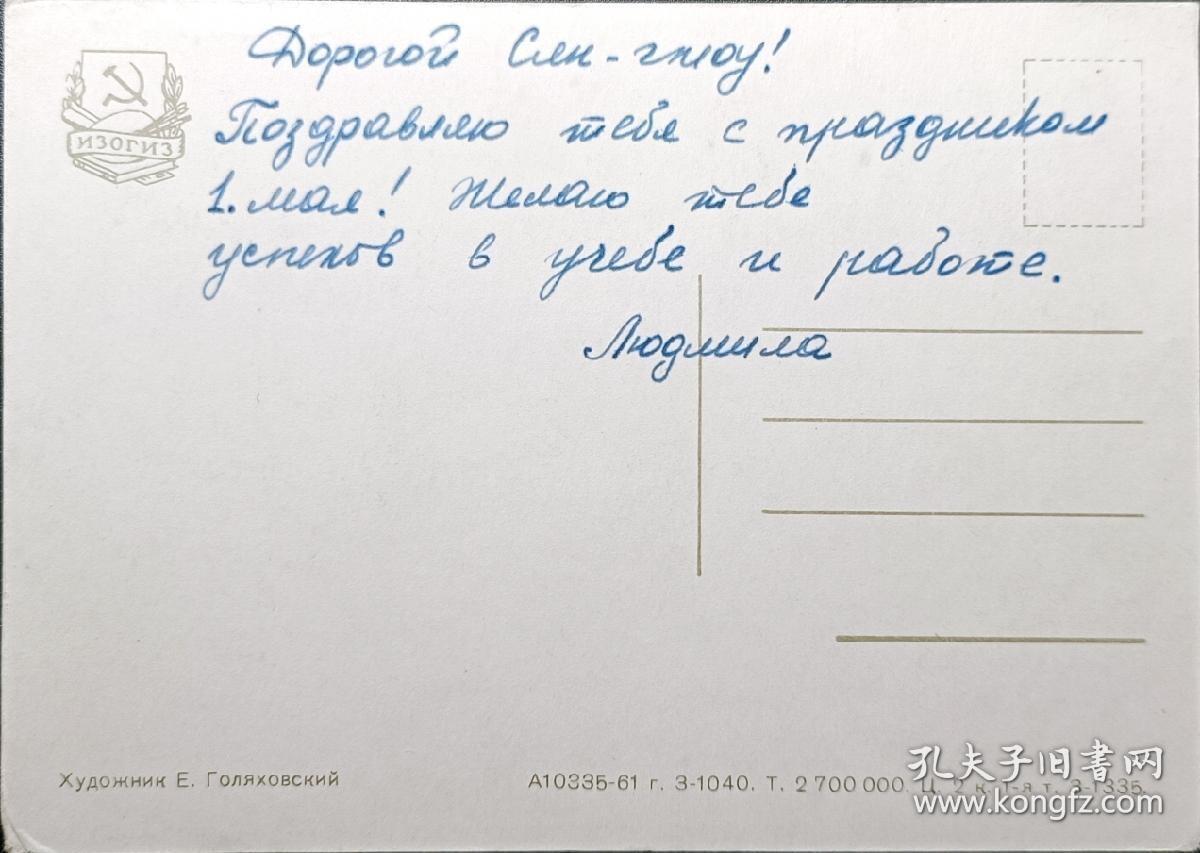 Дорогой Сян-гжоу!
Поздравляю тебя с праздником
1. мая! Желаю тебе
успехов в учебе и работе.
Людмила
ИЗОГИЗ
Художник Е. Голяховский
А10335-61 г. З-1040. Т. 2 700 000. Ц. 2 к. 1-я т. З-1335.
孔夫子旧书网
www.kongfz.com